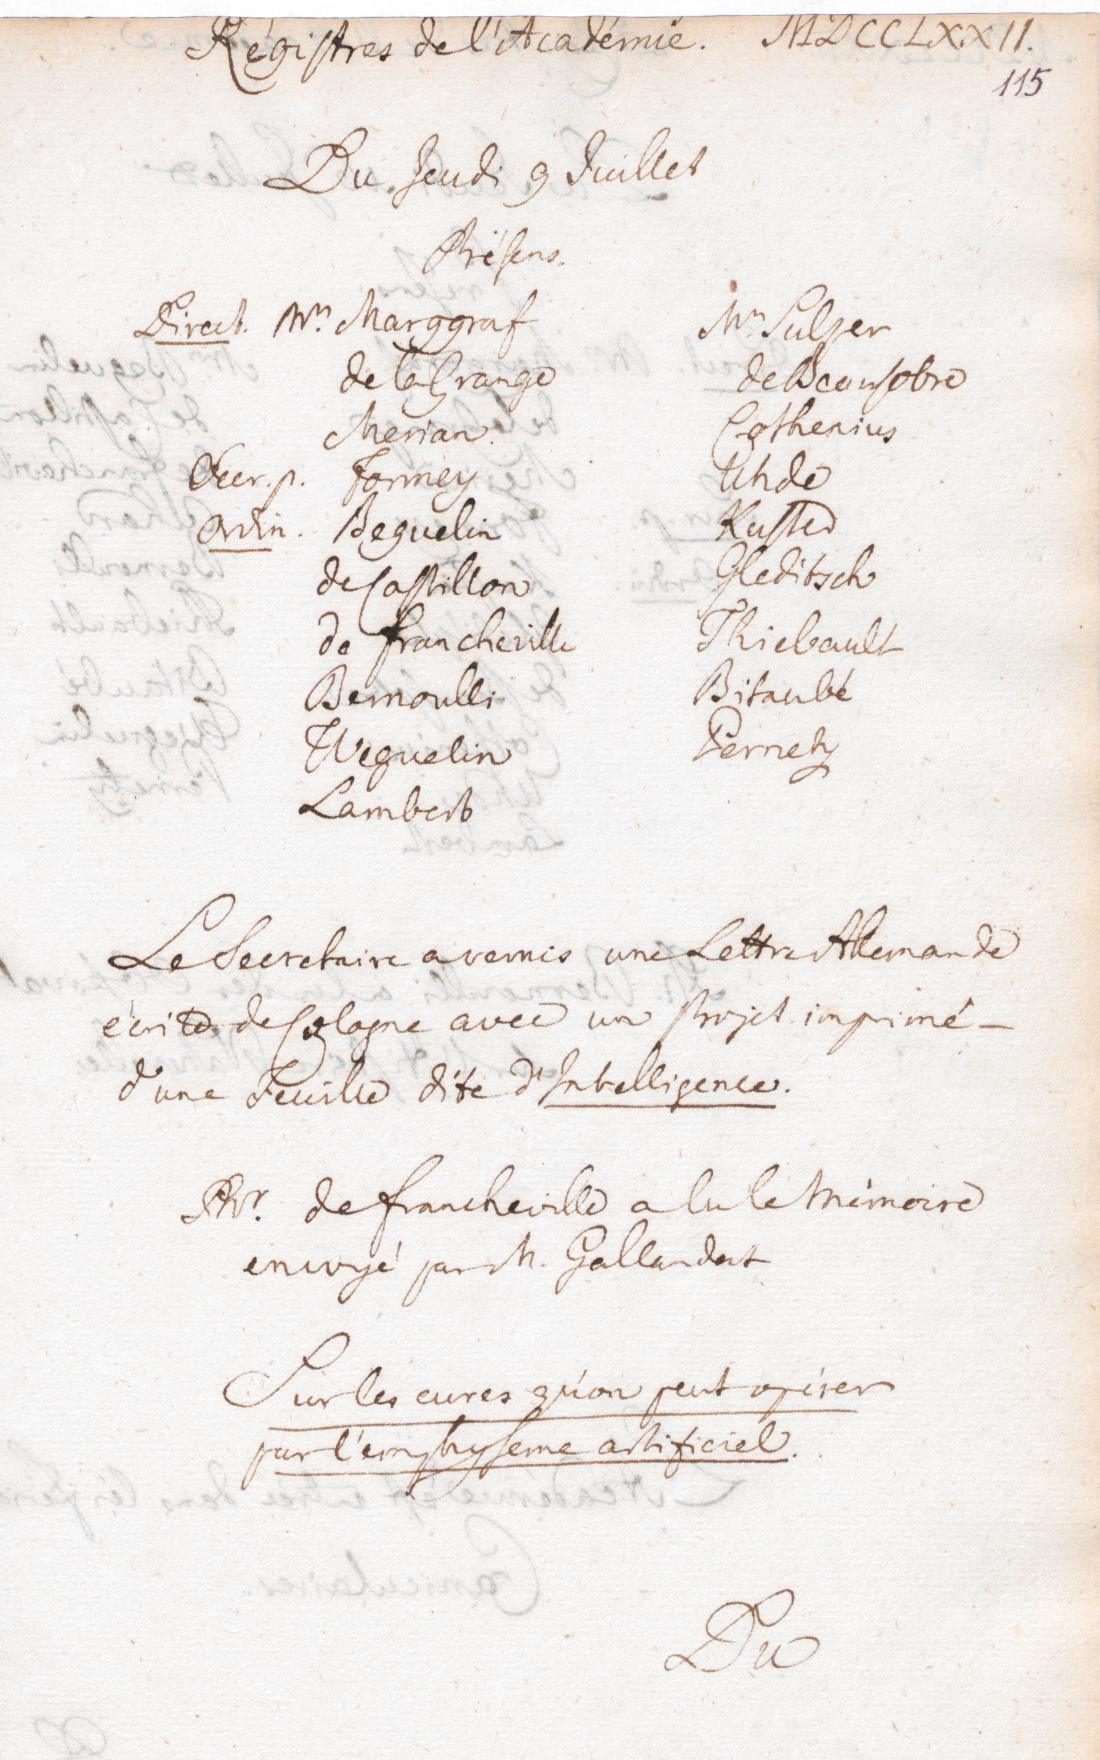 Régistres de l'Académie. MDCCLXXII.
115
Du Jeudi 9 Juillet
Présens.
Direct. Mrs. Marggraf
de la Grange
Merian.
Secr. p. Formey
Ordin. Beguelin
de Castillon
de Francheville
Bernoulli
Weguelin
Lambert
Mrs Sulzer
de Beausobre
Cothenius
Uhde
Kuster
Gleditsch
Thiebault
Bitaubé
Pernety
Le Secretaire a remis une Lettre Allemande
écrite de Cologne avec un Projet imprimé
d'une Feuille dite d'Intelligence.
Mr. de Francheville a lu le Mémoire
envoyé par M. Gallandat
Sur les cures qu'on peut opérer
par l'emphyseme artificiel.
Du